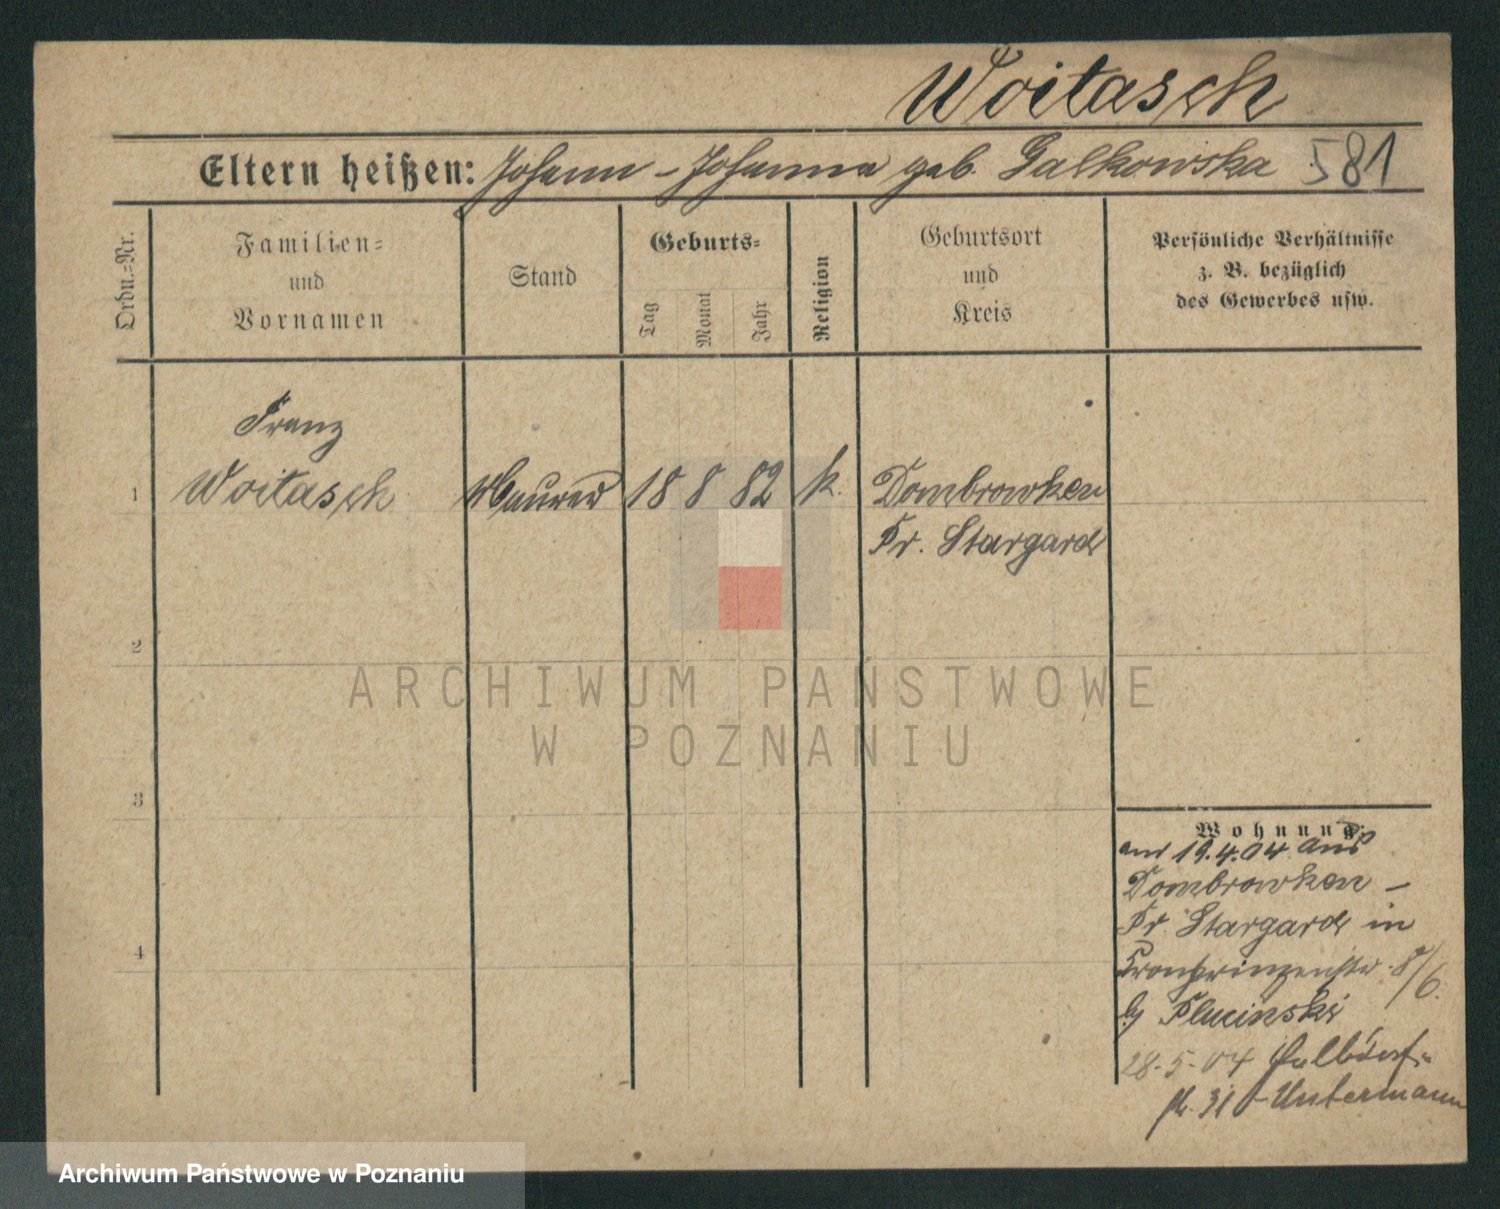 Woitasch
Eltern heißen: Johann - Johanna geb. Galkowska 581
Ordn.=Nr.
Familien=
und
Vornamen
Stand
Geburts=
Tag
Monat
Jahr
Religion
Geburtsort
und
Kreis
Persönliche Verhältnisse
z. B. bezüglich
des Gewerbes usw.
Franz
1 Woitasch Maurer 18 8 82 k. Dombrowken
Pr. Stargard
2
ARCHIWUM PAŃSTWOWE
W POZNANIU
3
Wohnung:
am 19.4.04 aus
Dombrowken -
Pr. Stargard in
4
Kronprinzenstr. 8/6.
b/ Plucinski
28.5.04 Halbdorf=
str. 31 - Untermann
Archiwum Państwowe w Poznaniu